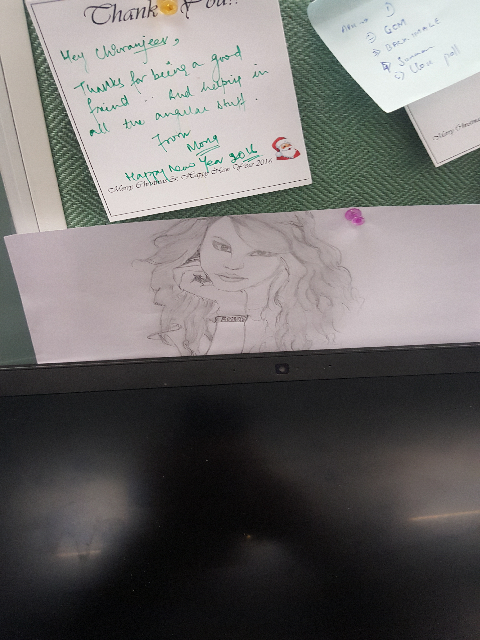 Thank You!!
Hey Chiranjeev,
Thanks for being a good
friend.. And helping in
all the angular stuff.
From
Mona
Happy New Year 2016
Merry Christmas & Happy New Year 2016
1)
2) GCM
3) BACK IMAGE
4) Summon
5) View poll
Merry Christmas